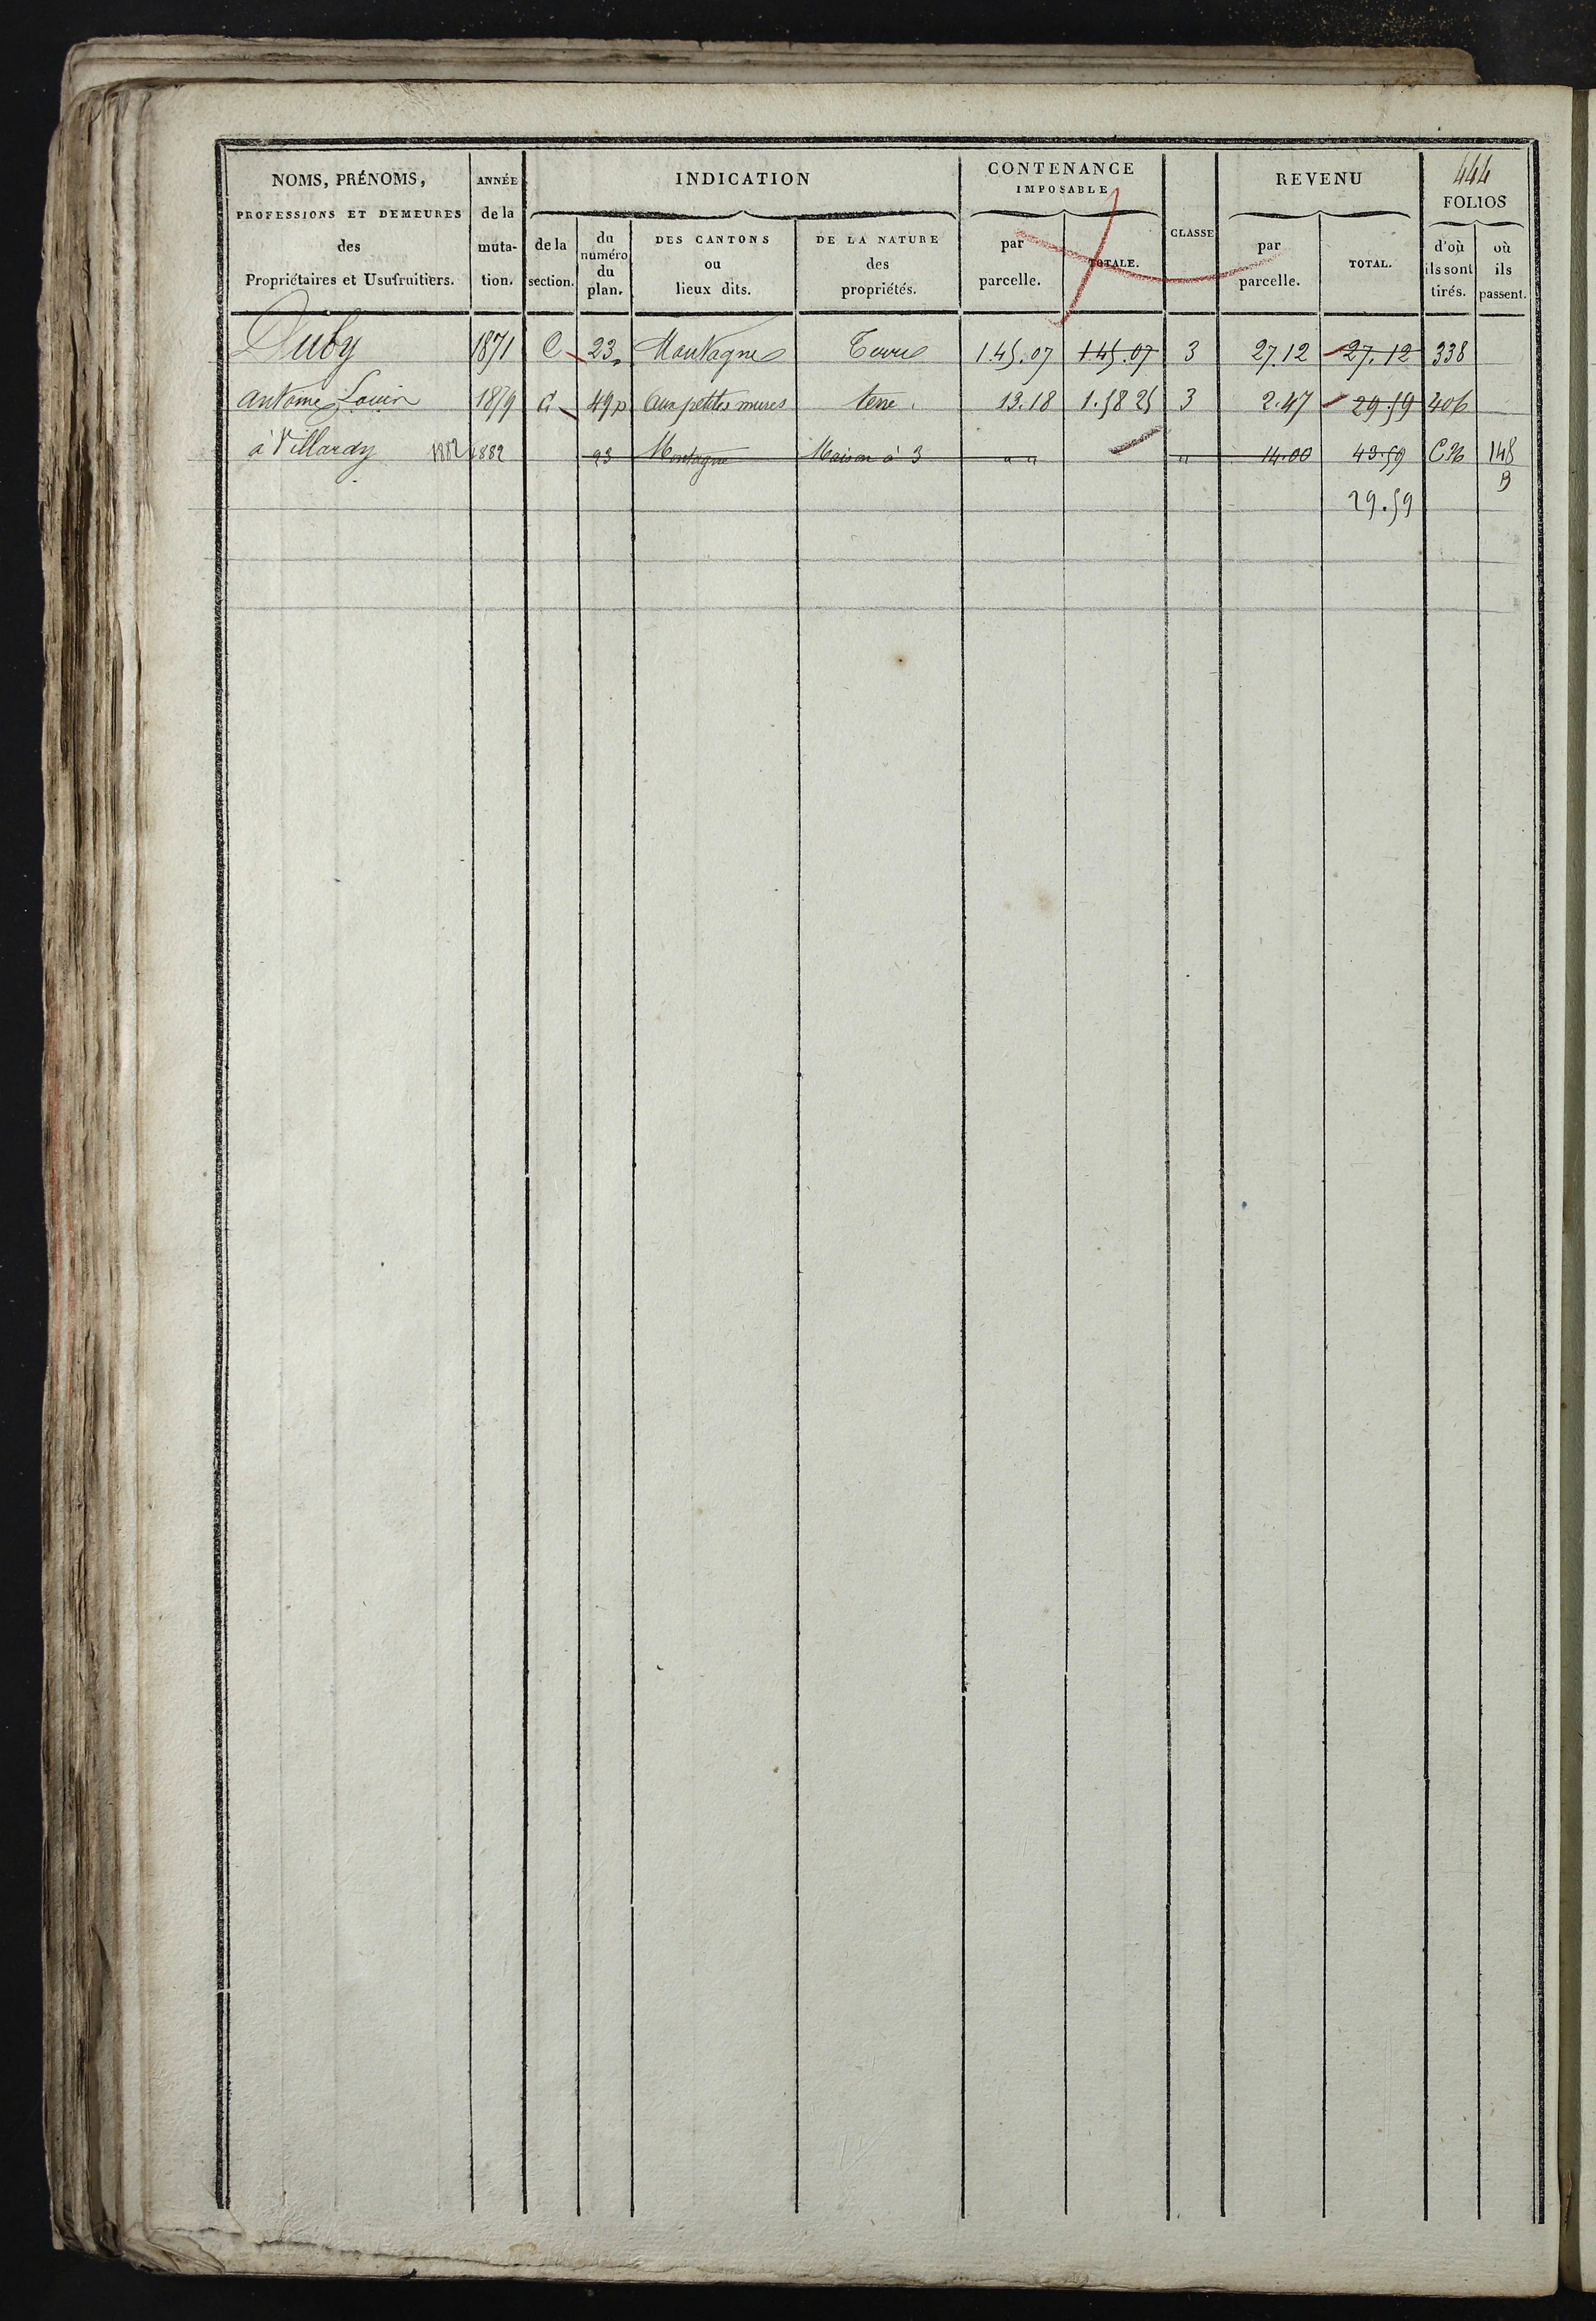 444
NOMS, PRÉNOMS, PROFESSIONS ET DEMEURES des Propriétaires et Usufruitiers.
ANNÉE de la muta- tion.
INDICATION
de la section.
du numéro du plan.
DES CANTONS ou lieux dits.
DE LA NATURE des propriétés.
CONTENANCE IMPOSABLE
par parcelle.
TOTALE.
CLASSE
REVENU
par parcelle.
TOTAL.
FOLIOS
d'où ils sont tirés.
où ils passent.
Duby 1871 C 23 Montagne Terre 1.45.07 1.45.07 3 27.12 27.12 338
Antoine Louis 1879 49p aux petites mures terre 13.18 1.58 25 3 2.47 29.59 406
à Villardy 1882 1882 23 Montagne Maison à 3 " " " 14.00 43.59 148
B
29.59